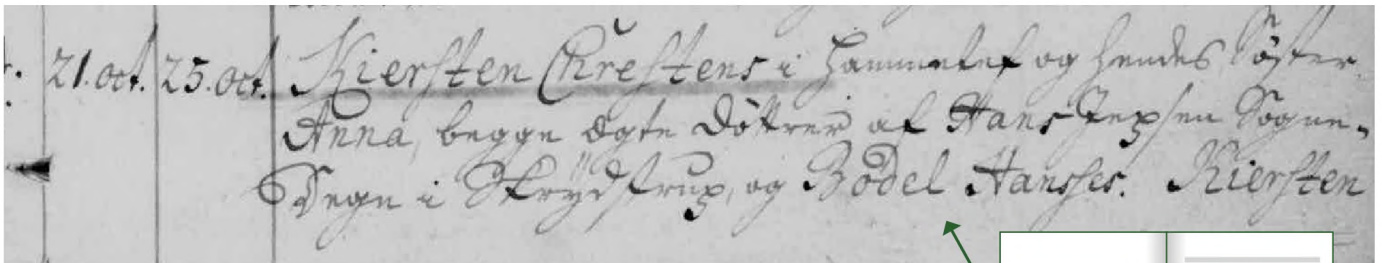 21. oct. 25. oct. Kiersten Chrestens i Hammelef og hendes Søster
Anna, begge ægte Døttrer af Hans Jepsen Sogne-
Degn i Skrydstrup, og Bodel Hansses. Kiersten